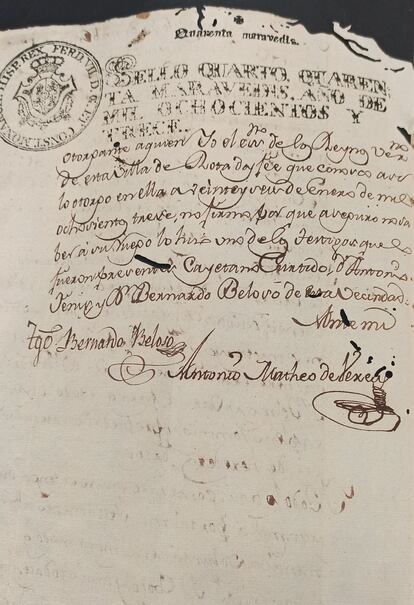 Quarenta maravedis.
HISP. REX FERD. VII. D. G. ET CONST. MONARCH.
SELLO QUARTO, QUAREN
TA MARAVEDIS, AÑO DE
MIL OCHOCIENTOS Y
TRECE.
otorgante a quien Yo el ess.no de los Reynos vez.no
de esta Villa de Rota doy fee que conosco asi
lo otorgó en ella a veinte y seis de Enero de mil
ochocientos trese, no firmó por que aseguró no sa
ber á su ruego lo hiso uno de los testigos que lo
fueron presentes Cayetano Curtido, D.n Antonio
y D.n Bernardo Beloso de esta Vecindad.
Ante mi
Tgo. Bernardo Beloso
Antonio Matheo de